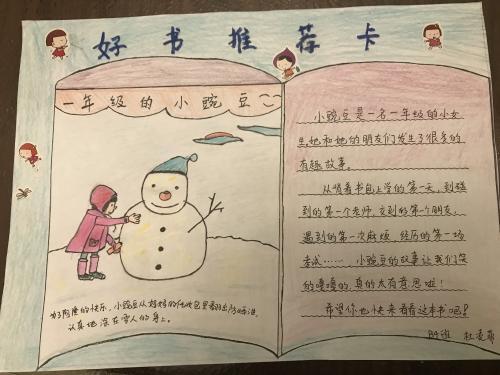 好书推荐卡
一年级的小豌豆
小豌豆是一名一年级的小女
生,她和她的朋友们发生了很多的
有趣故事。
从背着书包上学的第一天,到碰
到的第一个老师,交到的第一个朋友,
遇到的第一次麻烦,经历的第一场
考试……小豌豆的故事让我们笑
的嘎嘎的,真的太有意思啦!
希望你也快来看看这本书吧!
为了阿隆的快乐,小豌豆从妈妈的化妆包里翻出防晒油,
认真地涂在雪人的身上。